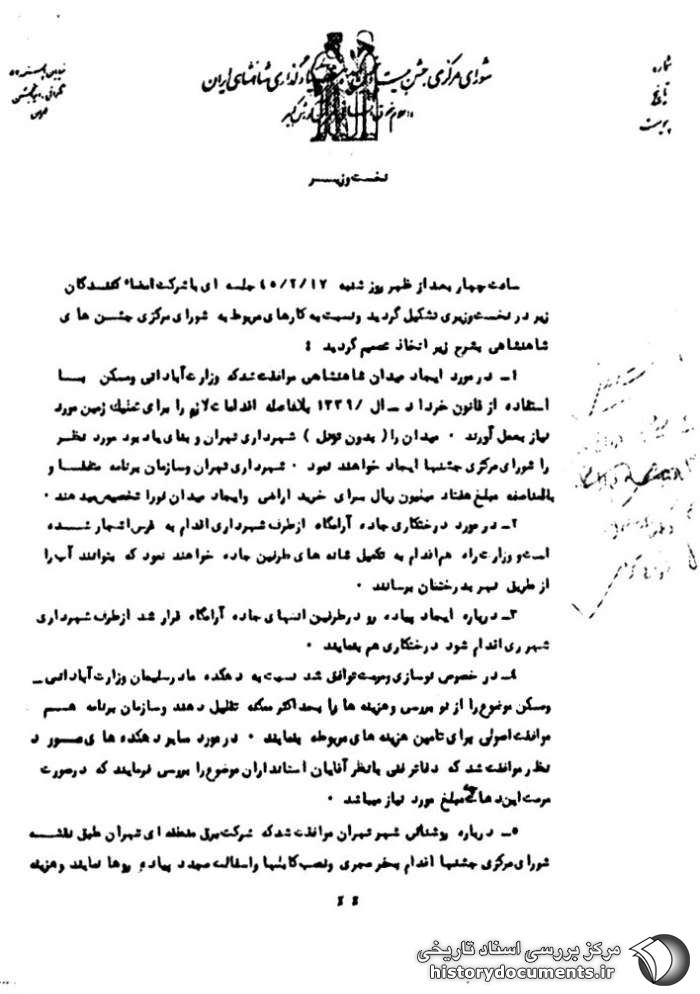 شماره
تاریخ
پیوست
شورای مرکزی جشن بنیادگذاری شاهنشاهی ایران
نخست وزیر
ساعت چهار بعد از ظهر روز شنبه ۴۵/۲/۱۷ جلسه ای با شرکت امضاء کنندگان
زیر در نخست وزیری تشکیل گردید ونسبت به کارهای مربوط به شورای مرکزی جشن های
شاهنشاهی بشرح زیر اتخاذ تصمیم گردید :
۱ــ در مورد ایجاد میدان شاهنشاهی موافقت شد که وزارت آبادانی ومسکن بـــا
استفاده از قانون خرداد ســال /۱۳۳۹ بلافاصله اقدامات لازم را برای تملیک زمین مورد
نیاز بعمل آورند ۰ میدان را ( بدون تونل ) شهرداری تهران و بنای یاد بود مورد نظـر
را شورای مرکزی جشنها ایجاد خواهند نمود ۰ شهرداری تهران وسازمان برنامه متفقـا و
بالمناصفه مبلغ هفتاد میلیون ریال برای خرید اراضی وایجاد میدان فورا تخصیص میدهند ۰
۲ــ در مورد درختکاری جاده آرامگاه ازطرف شهرداری اقدام به غرس اشجار شـــده
است و وزارت راه هم اقدام به تکمیل شانه های طرفین جاده خواهند نمود که بتوانند آب را
از طریق نهر بدرختان برسانند ۰
۳ــ درباره ایجاد پیاده رو درطرفین انتهای جاده آرامگاه قرار شد ازطرف شهرداری
شهر ری اقدام شود درختکاری هم بنمایند ۰
۴ــ در خصوص نوسازی ومرمت توافق شد نسبت به دهکده مادر سلیمان وزارت آبادانی ــ
ومسکن موضوع را از نو بررسی وهزینه ها را بحداکثر ممکنه تقلیل دهند وسازمان برنامه هـــم
موافقت اصولی برای تامین هزینه های مربوطه بنمایند ۰ در مورد سایر دهکده های مـــورد
نظر موافقت شد که دفاتر فنی با نظر آقایان استانداران موضوع را بررسی فرمایند که درصورت
مرمت این دهات چه مبلغ مورد نیاز میباشد ۰
۵ــ درباره روشنائی شهر تهران موافقت شد که شرکت برق منطقه ای تهران طبق نقشـــه
شورای مرکزی جشنها اقدام بحفر مجری ونصب کابلها واسفالت مجدد پیاده روها نمایند وهزینه
مرکز بررسی اسناد تاریخی
historydocuments.ir